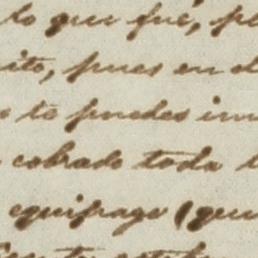 to que fué, p
ito, pues en
te puedes im
cobrado toda
equipage (que